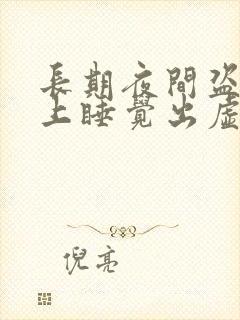 長期夜間盜
上睡覺出虛
倪亮